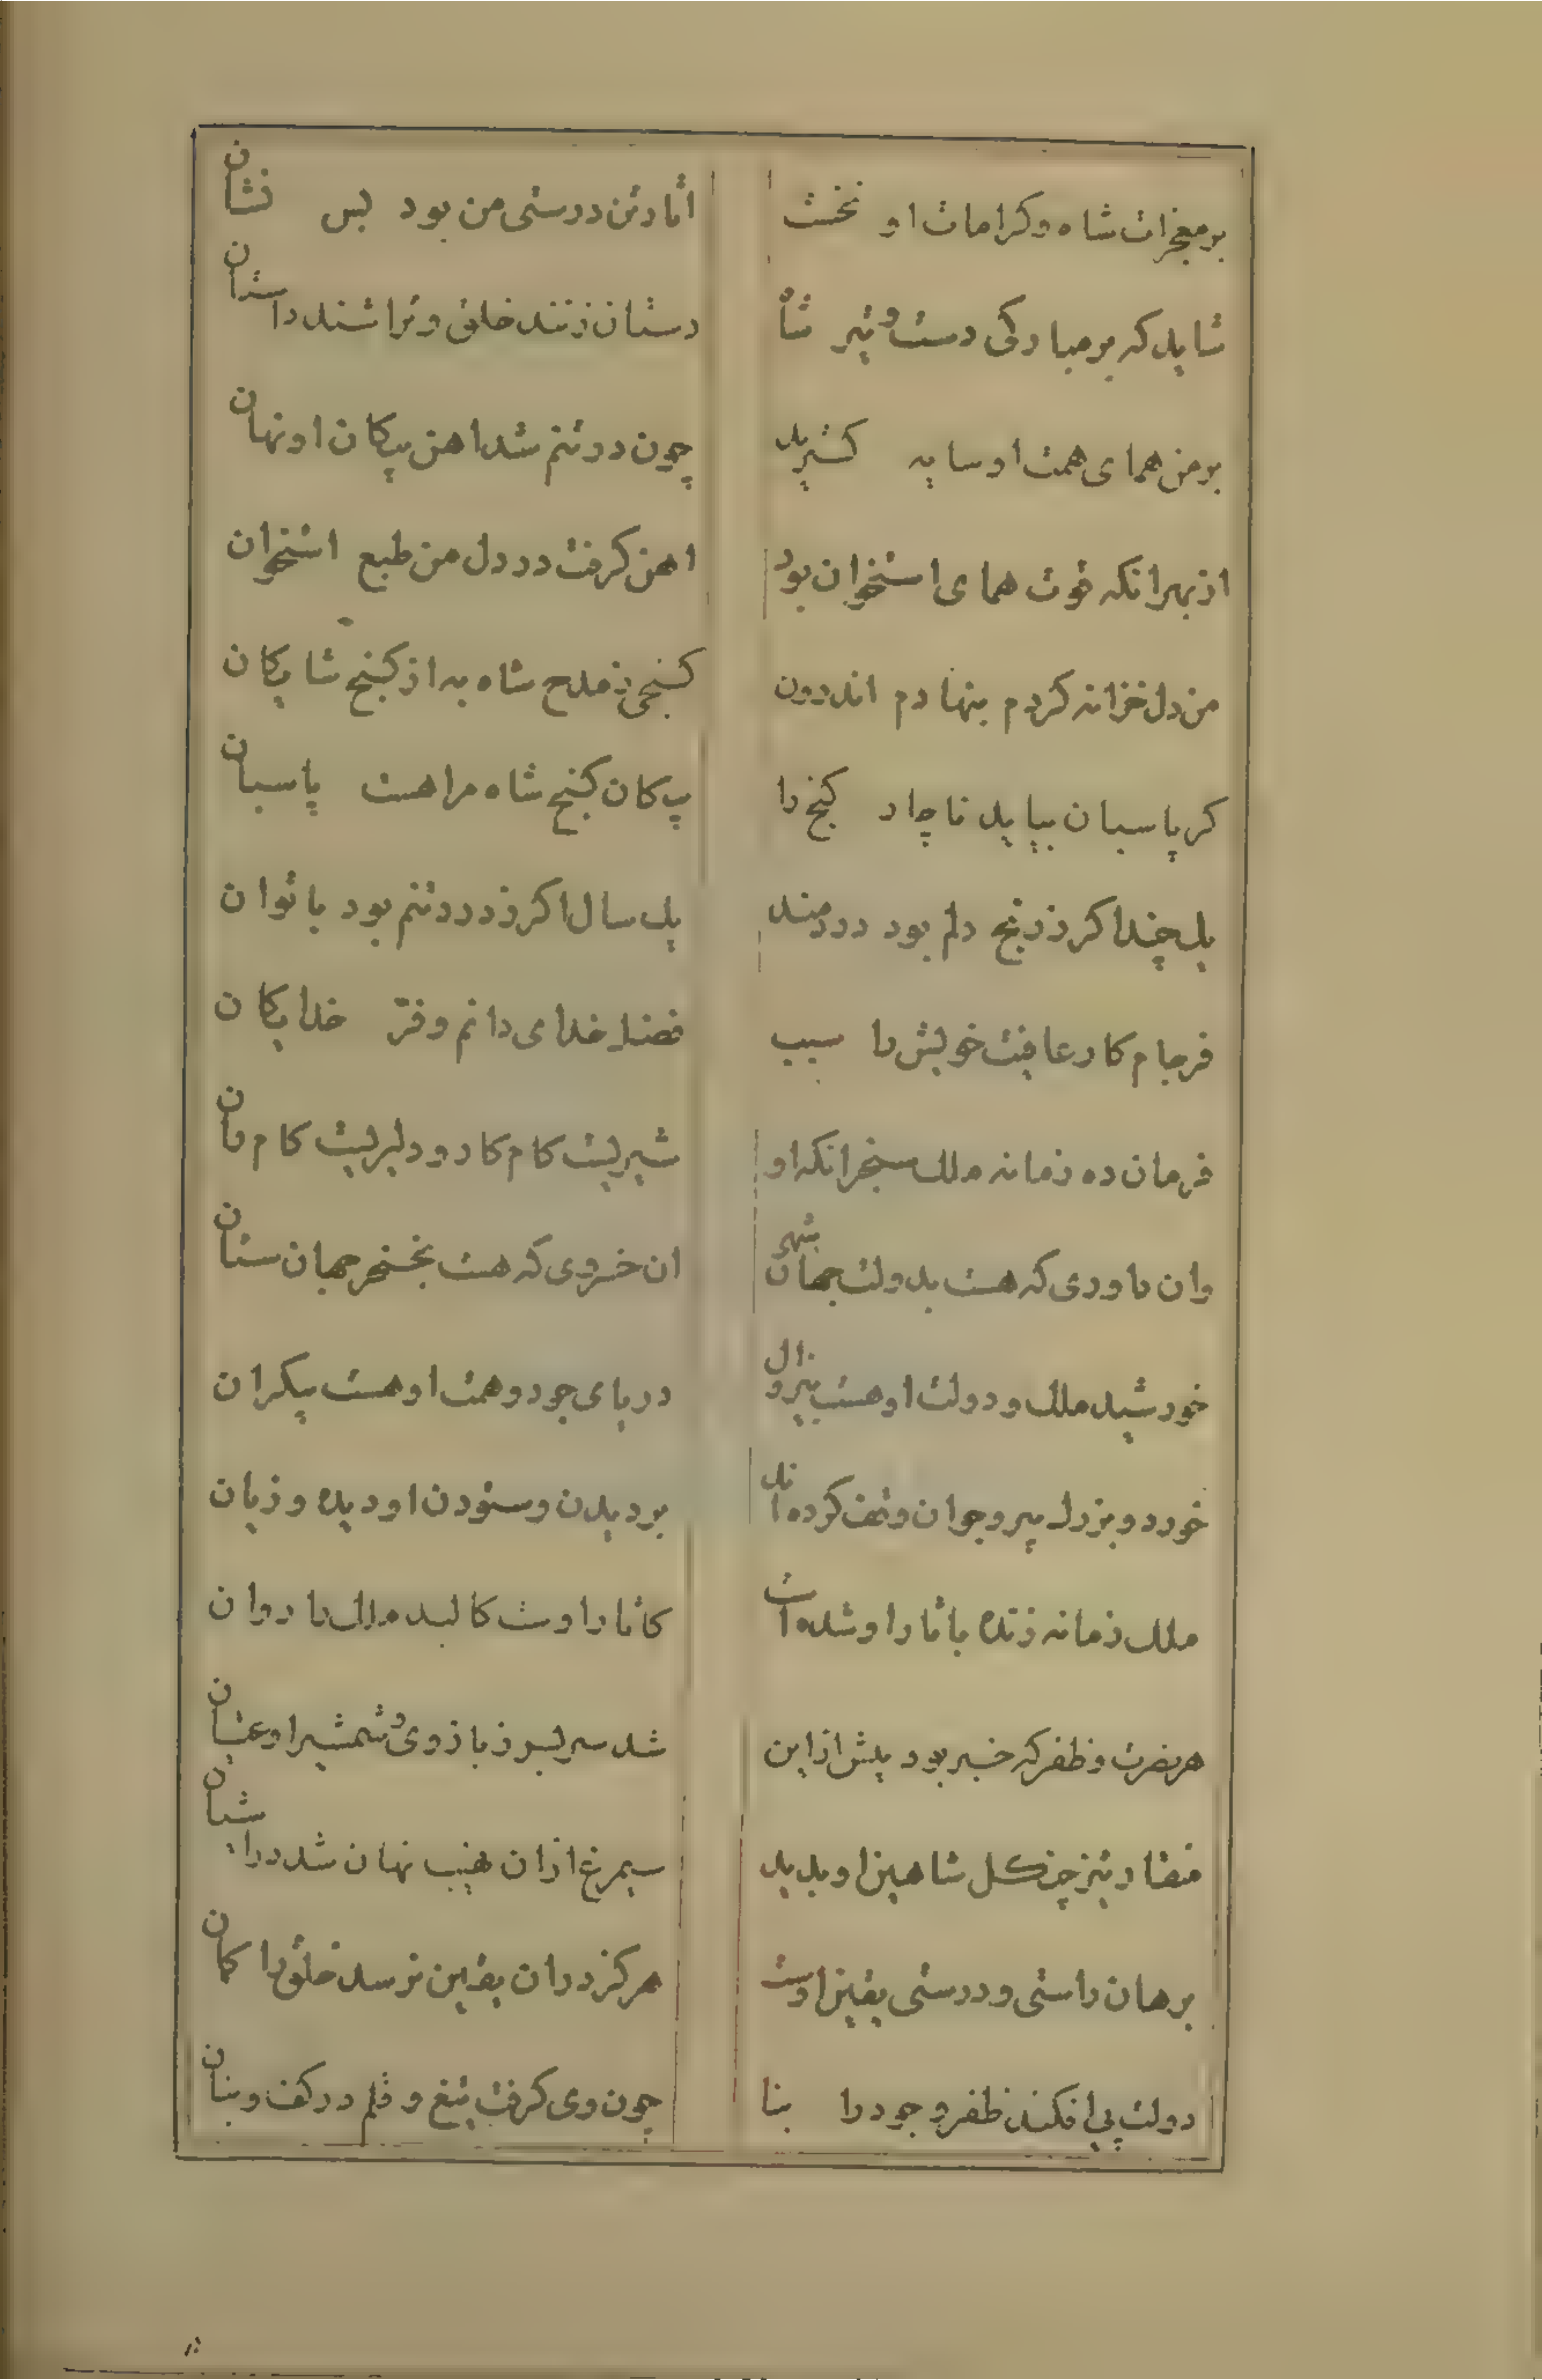 بر معجزات شاه و کرامات او نخست اثار تن درستی من بود بس نشان
شاید که بر مبارکی دست و تیر شاه دستان زنند خلق و تراشند داستان
بر من همای همت او سایه کسترید چون در تنم شد اهن پیکان او نهان
از بهر انکه قوت همای استخوان بود اهن کرفت در دل من طبع استخوان
من دل خزانه کردم بنهادم اندرون کنجی ز مدح شاه به از کنج شایکان
کر پاسبان بباید ناچار کنج را پیکان کنج شاه مرا هست پاسبان
یک چند اکر ز رنج دلم بود دردمند یک سال اکر ز درد تنم بود باتوان
فرجام کار عافیت خویش را سبب فضل خدای دانم و فرّ خدایکان
فرمان ده زمانه ملک سنجر انکه او شیریست کام کار و دلیریست کام ران
وان داوری که هست بدولت جهان شهی ان خسروی که هست بخنجر جهان ستان
خورشید ملک و دولت او هست بی زوال دریای جود و همت او هست بیکران
خورد و بزرک پیر و جوان وقف کرده اند بر دیدن و ستودن او دیده و زبان
ملک زمانه زنده باثار او شده است کاثار اوست کالبد ملک را روان
هر نصرت و ظفر که خبر بود پیش از این شد سر بسر ز بازوی و شمشیر او عیان
منقار تیز چنکل شاهین او بدید سیمرغ از ان نهیب نهان شد در اشیان
برهان راستی و درستی یقین اوست هرکز در ان یقین نرسد خلق را کمان
دولت پی افکند ظفر و جود را بنا چون وی کرفت تیغ و قلم در کف و بنان